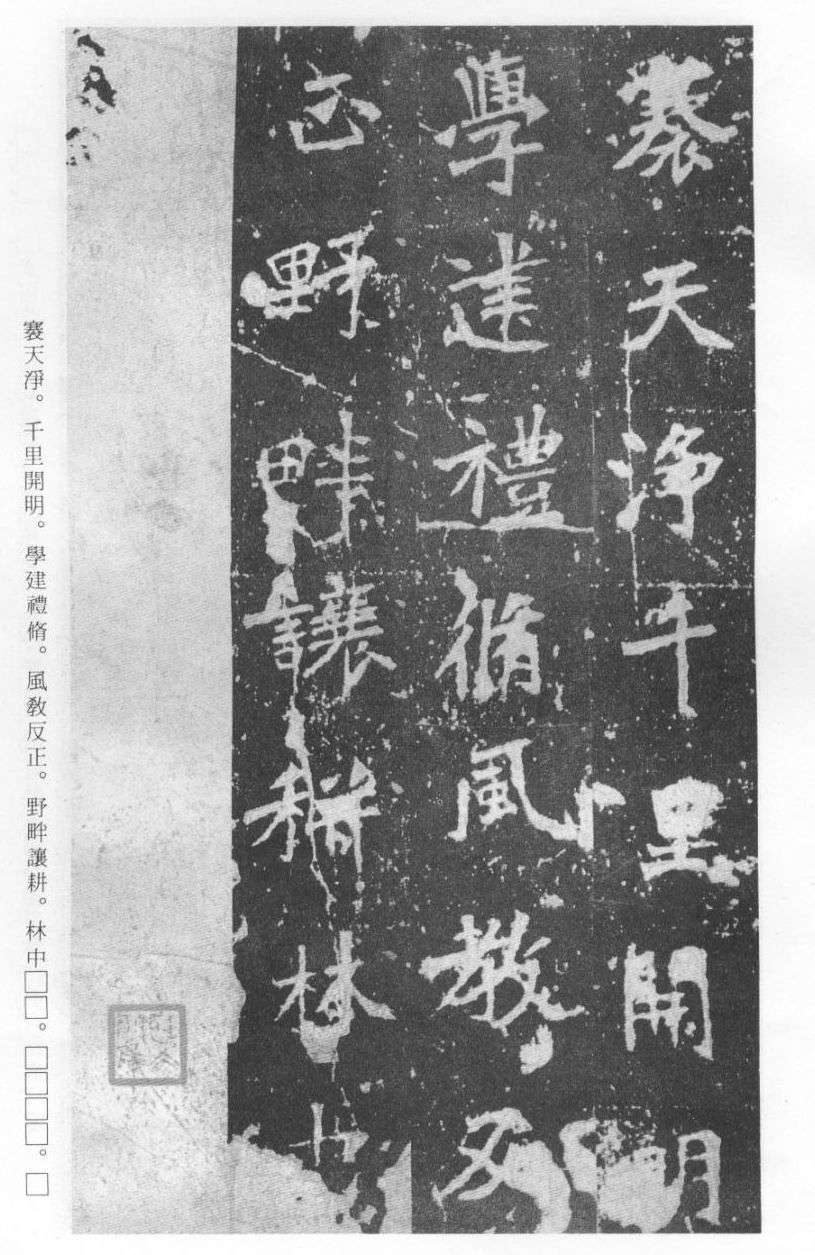 褰天淨千里開明
學建禮脩風教反
正野畔讓耕林中
褰天淨。千里開明。學建禮脩。風敎反正。野畔讓耕。林中□□。□□□□。□